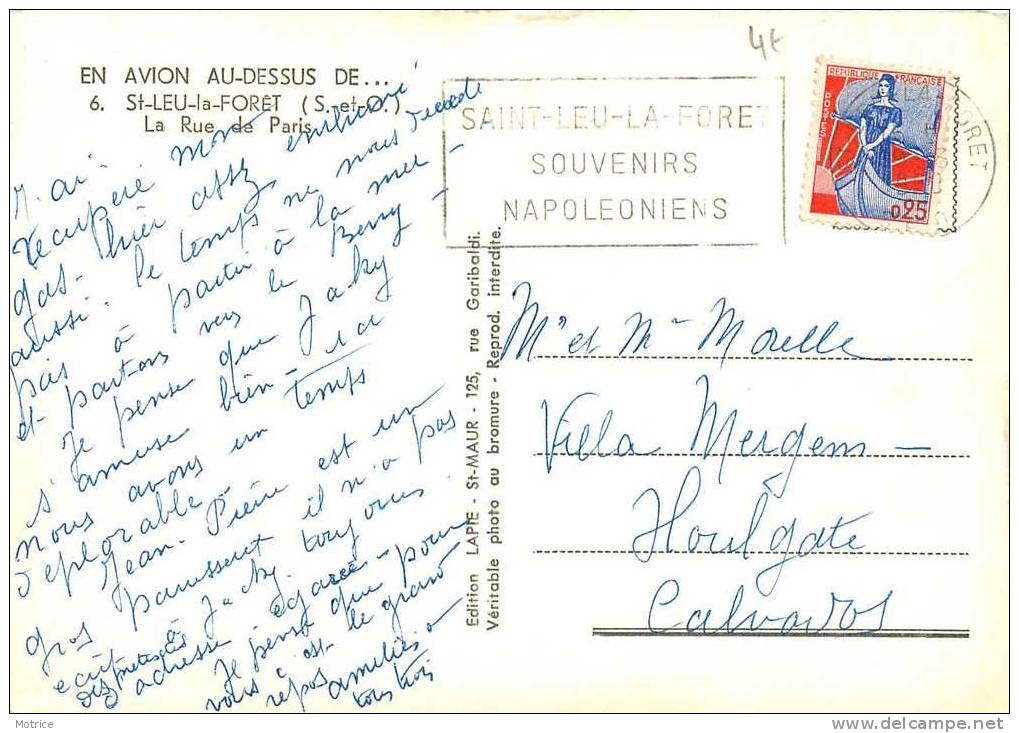 4t
EN AVION AU-DESSUS DE...
6. St-LEU-la-FORÊT (S.-et-O.)
La Rue de Paris
SAINT-LEU-LA-FORET
SOUVENIRS
NAPOLEONIENS
REPUBLIQUE FRANÇAISE
POSTES
0,25
LA FORET
J'ai
récupéré mon
gas - hier assez enrhumé
aussi. le temps ne nous décide
pas à partir à la mer -
et partons vers le Berry -
Je pense que Jaky
s'amuse bien - ici
nous avons un temps
déplorable -
Jean-Pierre est un
gros paresseux il n'a pas
écrit à Jacky. toujours
des prétextes
adresse égarée -
Je pense que pour
vous c'est le grand
repos amitiés à
tous trois
Edition LAPIE - St-MAUR - 125, rue Garibaldi.
Véritable photo au bromure - Reprod. interdite.
Mr et Me Morelle
Villa Mergem -
Houlgate
Calvados
Motrice
www.delcampe.net